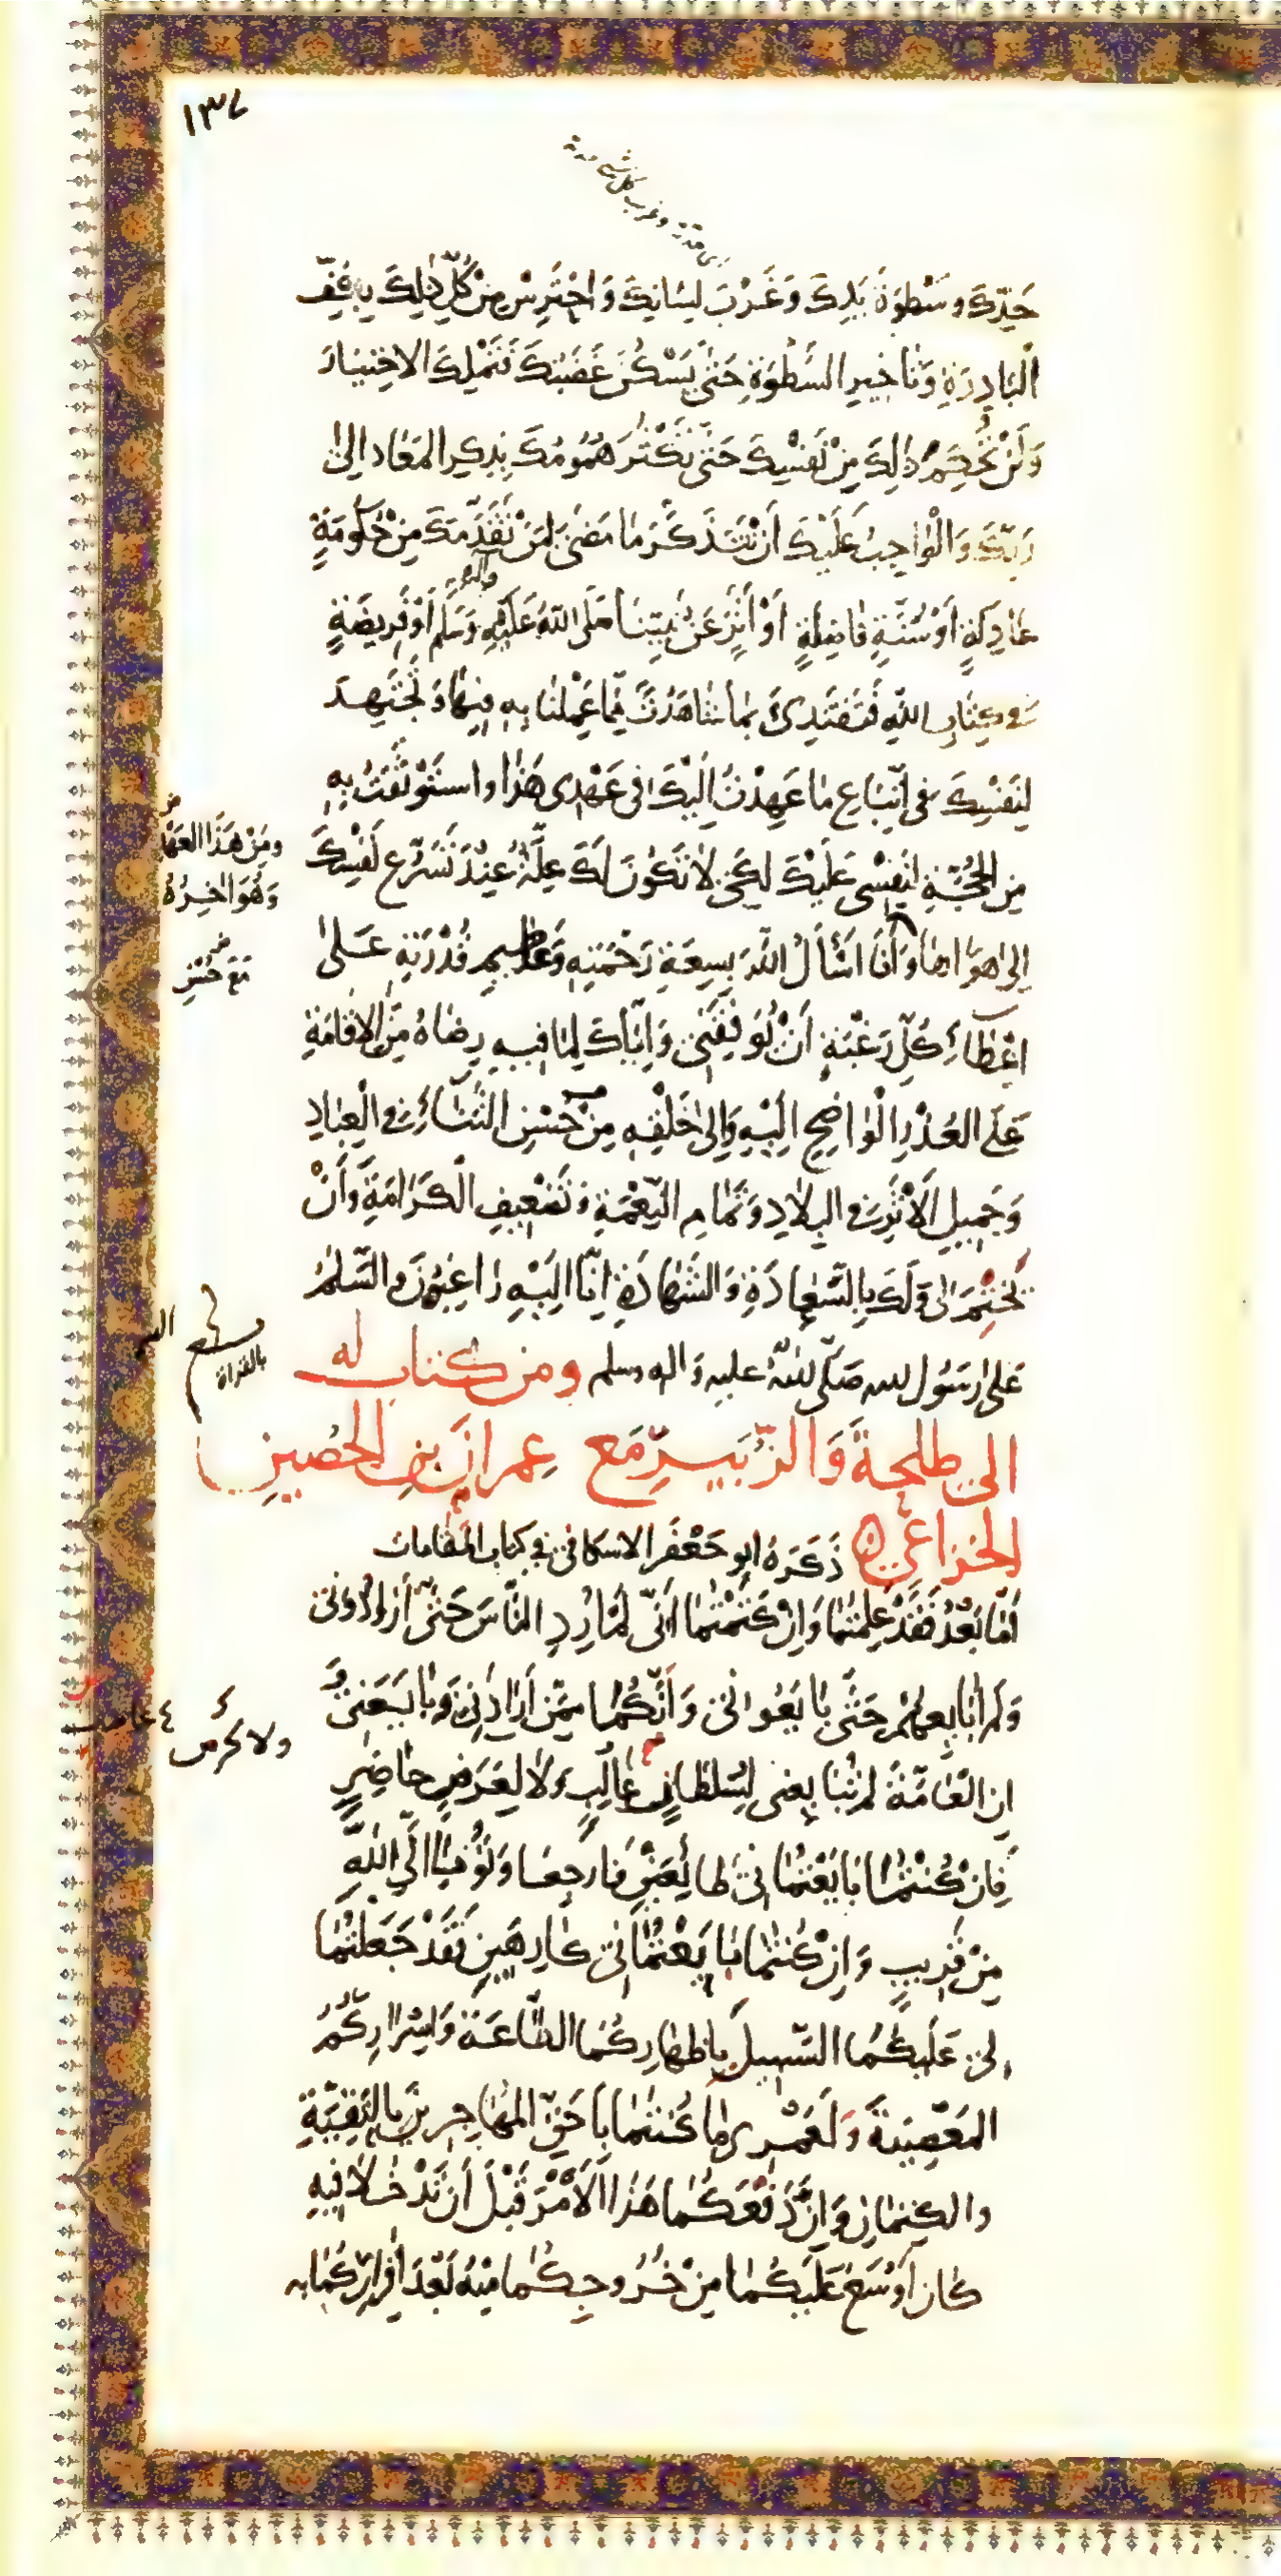 ١٣٧
حَدِّكَ وسَطْوَةَ يَدِكَ وَغَرْبَ لِسَانِكَ وَاحْتَرِسْ مِنْ كُلِّ ذٰلِكَ بِكَفِّ
الْبَادِرَةِ وَتَاخِيرِ السَّطْوَةِ حَتّٰى يَسْكُنَ غَضَبُكَ فَتَمْلِكَ الاخْتِيَارَ
وَلَنْ تُحْكِمَ ذٰلِكَ مِنْ نَفْسِكَ حَتّٰى تُكْثِرَ هُمُومَكَ بِذِكرِ المَعَادِ الىٰ
رَبِّكَ وَالْوَاجِبُ عَلَيْكَ أَنْ تَتَذَكَّرَ مَا مَضَىٰ لِمَنْ تَقَدَّمَكَ مِنْ حُكُومَةٍ
عَادِلَةٍ أَوْ سُنَّةٍ فَاضِلَةٍ أَوْ أَثَرٍ عَنْ نَبِيِّنَا صَلَّى اللّٰهُ عَلَيْهِ وَسَلَّم أَوْ فَرِيضَةٍ
وَآلِهِ
فى كِتَابِ اللّٰهِ فَتَقْتَدِىَ بِمَا شَاهَدْتَ مِمَّا عَمِلْنَا بِهِ فِيهَا وَتَجْتَهِدَ
لِنَفْسِكَ فى اتِّبَاعِ مَا عَهِدْتُ إِلَيْكَ فى عَهْدِى هَذَا واستَوْثَقْتُ بِهِ
مِنَ الحُجَّةِ لِنَفْسِى عَلَيْكَ لِكَىْ لاٰ تَكُونَ لَكَ عِلَّةٌ عِنْدَ تَسَرُّعِ نَفْسِكَ
ومِنْ هَذَا العَهْدِ
وَهُوَ اٰخِرُهُ
إِلىٰ هَوَاهَا وَأَنَا اَسْأَلُ اللّٰهَ بِسِعَةِ رَحْمَتِهِ وَعَظِيمِ قُدْرَتِهِ عَلىٰ
مَعَ حُسْنِ
اعْطَاءِ كُلِّ رَغْبَةٍ أَنْ يُوَفِّقَنِى وَاِيَّاكَ لِمَا فِيهِ رِضَاهُ مِنَ الاِقَامَةِ
عَلَى العُذْرِ الْوَاضِحِ الَيْهِ وَإِلىٰ خَلْقِهِ مِنْ حُسْنِ الثَّنَاءِ فى الْعِبَادِ
وَجَمِيلِ الْأَثَرِ فى البِلاٰدِ وَتَمَامِ النِّعْمَةِ وَتَضْعِيفِ الْكَرَامَةِ وَأَنْ
يَخْتِمَ لى وَلَكَ بِالسَّعَادَةِ وَالشَّهَادَةِ اِنَّا الَيْهِ رَاغِبُونَ والسَّلٰمُ
بالقراة
عَلىٰ رَسُولِ الله صَلَّى اللّٰهُ عليه وَاله وسلم ومن كتاب له
الى طلحةَ وَالزُّبَيرِ مَع عِمرانَ بنِ الحُصَينِ
الخُزاعىِّ ذَكَرَهُ ابو جَعْفَر الاسكافى فى كتاب المقامات
أَمَّا بَعْدُ فَقَدْ عَلِمتُمَا وَاِنْ كَتَمْتُمَا اَنِّى لَمْ أُرِدِ النَّاسَ حَتّٰى أَرَادُونى
وَلَم أُبَايِعهُمْ حَتَّى بَايَعُوانى وَاَنَّكُمَا مِمَّن أَرَادَنِى وَبَايَعَنِى وَ
ولا لحرص
اِن الْعَامَّةَ لَم تُبَايِعنى لِسُلطَانٍ غَالِبٍ وَلاٰ لِعَرَضٍ حَاضِرٍ
فَاِنْ كُنْتُمَا بَايَعْتُمَانى طَائِعَيْنِ فَارجِعَا وَتُوبَا الَى اللّٰهِ
مِنْ قَرِيبٍ وَاِنْ كُنتُمَا بَايَعْتُمَانى كَارِهَيْنِ فَقَدْ جَعَلْتُمَا
لى عَلَيكُمَا السَّبِيلَ بِاِظهَارِكُمَا الطَّاعَةَ وَاِسْرَارِكُمَا
المَعْصِيَةَ وَلَعَمْرى مَا كُنتُمَا بِأَحَقِّ المُهَاجِرِينَ بِالتَقِيَّةِ
والكِتمَانِ وَاِنَّ دَفْعَكُمَا هَذَا الأَمْرَ قَبْلَ أَن تَدْخُلاٰ فِيهِ
كَان أَوْسَعَ عَلَيْكُمَا مِنْ خُرُوجِكُمَا مِنْهُ بَعْدَ اِقْرَارِكُمَا بِه